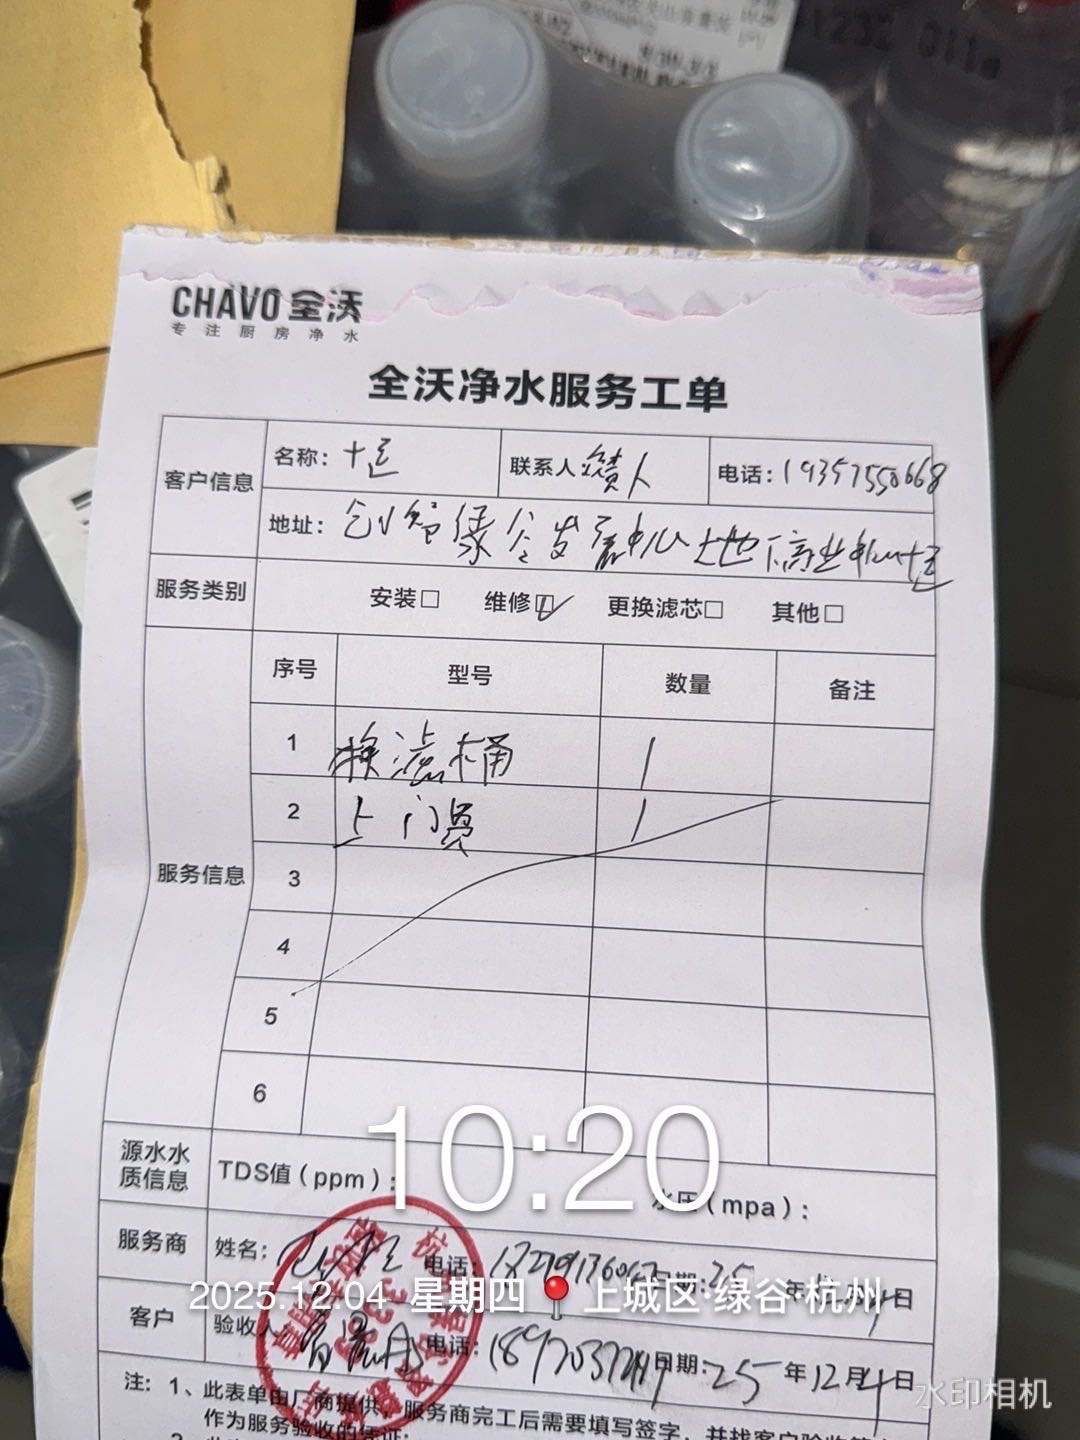 1232 011a
CHAVO 全沃
专注厨房净水
全沃净水服务工单
客户信息 名称： 联系人 电话：19357550668
地址：创智绿谷发展中心 地下商业
服务类别 安装□ 维修☑ 更换滤芯□ 其他□
服务信息 序号 型号 数量 备注
1 换滤桶 1
2 上门费 1
3
4
5
6
10:20
源水水质信息 TDS值（ppm）： 水压（mpa）：
服务商 姓名： 电话： 日期：25 年 日
2025.12.04 星期四 上城区·绿谷·杭州
客户 验收人 电话： 日期：25 年 12 月 4 日
水印相机
注：1、此表单由厂商提供，服务商完工后需要填写签字，并找客户验收签
作为服务验收的凭证；